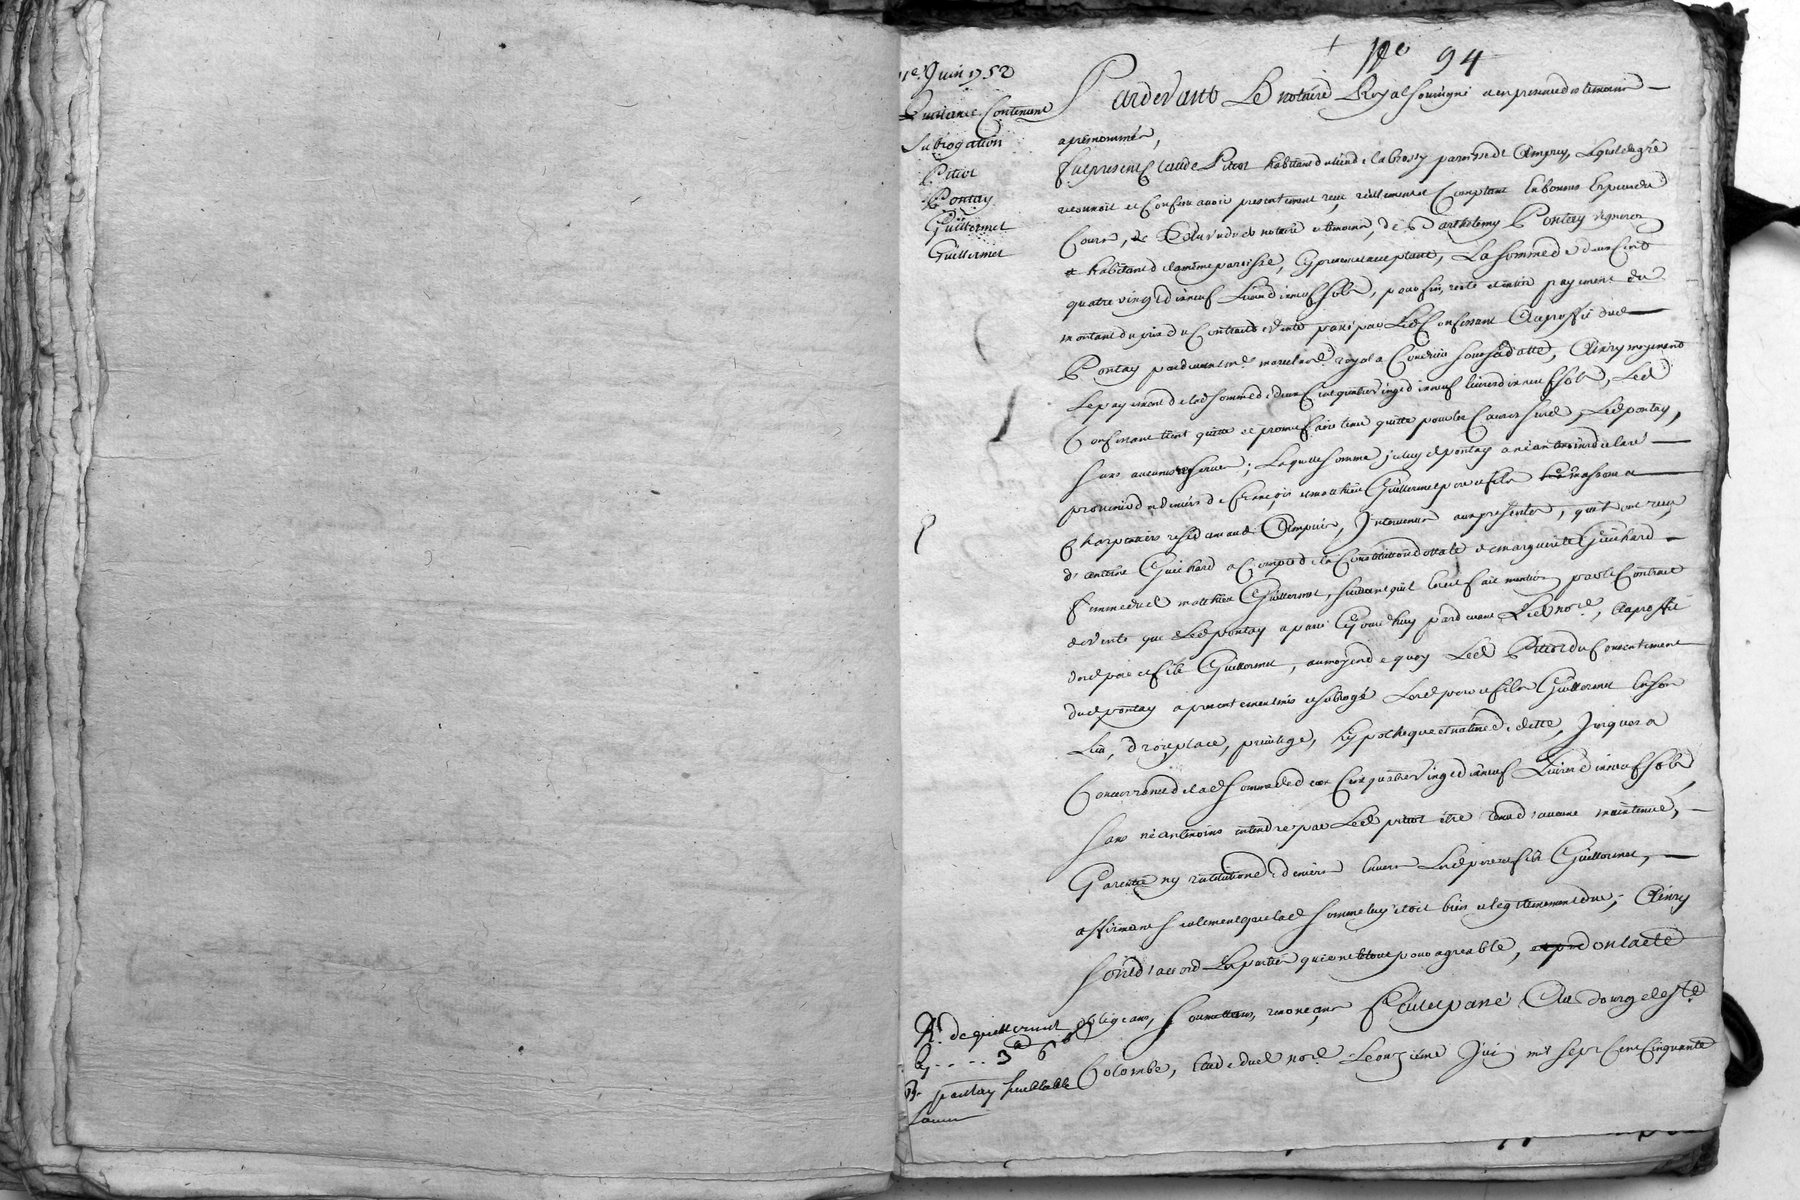 No 94
11e. Juin 1752
Quittance Contenant
Subrogation
Pitiot
Pontay
Guillermet
Guillermet
Pardevant Le notaire Royal soussigné et en presence des temoins
apres nommés,
fut present Claude Pitiot habitant du lieu de la brossy paroisse de Ampuy, Lequel de gré
reconnoit et confesse avoir presentement reçu reellement et Comptant En bonnes Especes de
Cours, a Veüe dud notaire et temoins, de Barthelemy Pontay vigneron
et habitant de la même paroisse, icy present acceptant, La somme de deux Cent
quatre vingt dix neuf Livres dix neuf sols, pour fin, reste et entier payement du
montant du prix du Contract de Vente passé par Led Confessant Au proffit dud
Pontay pardevant me. morel nore. royal a Condrieu sous sa datte, Au moyen du
payement de lad somme de deux Cent quatre vingt dix neuf livres dix neuf sols, Led
Confessant tient quitte et promet faire tenir quitte pour les Causes susd, Led pontay,
sans aucune reserve; Laquelle somme, iceluy pontay a néantmoins declaré
provenir des deniers de François et Matthieu Guillermet pere et fils masson et
Charpentier residents aud Ampuis, Intervenus aux presentes, qu'ils ont reçu
d'antoine Guichard a Compte de la Constitution dottale de marguerite Guichard
femme dud matthieu Guillermet, suivant qu'il en est fait mention par le Contract
de Vente que Led pontay a passé Cejourd'huy pardevant Led nore., Au proffit
desd pere et fils Guillermet, au moyen de quoy Led Pitiot du Consentement
dud pontay a presentement mis et subrogé Lesd pere et fils Guillermet en son
Lieu, droit, place, privilege, hypotheque et nature de dette, Jusques a
Concurrence de lad somme de deux Cent quatre Vingt dix neuf Livres dix neuf sols
sans néantmoins entendre par Led pitiot être tenu d'aucune maintenüe,
Garentie ny restitution de deniers Envers Lesd pere et fils Guillermet,
affirmant seulement que lad somme luy étoit bien et legitimement due; Ainsy
sont d'accord Les parties qui ont le tout pour agreable, dont acte
obligeant, soumettant, renonçant fait et passé Au bourg de Ste.
Colombe, Etude dud nore. Le onzieme Juin mil sept Cent Cinquante
R. de Guillermet
3 6
pontay semblable
somme